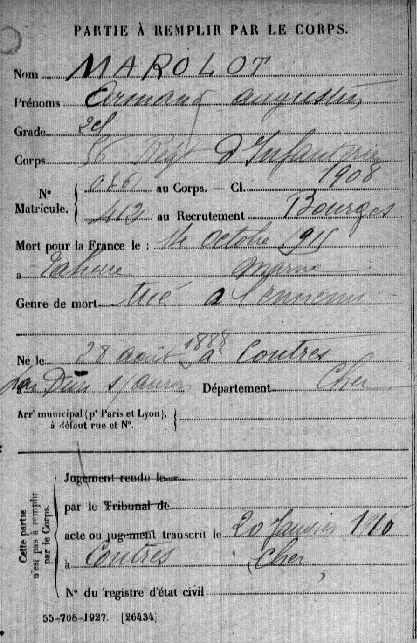 PARTIE À REMPLIR PAR LE CORPS.
Nom MAROLOT
Prénoms Armand Augustin
Grade 2cl
Corps Regt d'Infanterie
N° Matricule. { au Corps. — Cl. 1908
412 au Recrutement Bourges
Mort pour la France le : 14 octobre 915
à Tahure Marne
Genre de mort tué à l'ennemi
Né le 28 août 1888 à Contres
Dun s/ Auron Département Cher
Arrt municipal (pr Paris et Lyon), à défaut rue et N°. {
Cette partie n'est pas à remplir par le Corps. {
Jugement rendu le
par le Tribunal de
acte ou jugement transcrit le 20 Janvier
à Contres Cher
N° du registre d'état civil
55-708-1927. [26434]